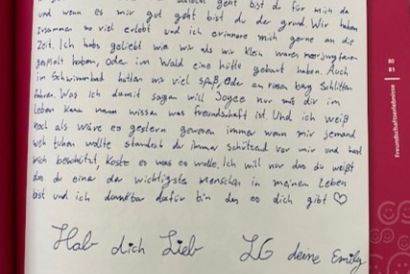 geht bist du für mich da
und wenn es mir gut geht bist du der grund. Wir haben
zusammen so viel erlebt und ich erinnere mich gerne an die
Zeit. Ich habs geliebt wie wir als wir klein waren meerjungfrauen
gespielt haben, oder im Wald eine hütte gebaut haben. Auch
im Schwimmbad hatten wir viel spaß, Oder am rosen berg Schlitten
fahren. Was ich damit sagen will Joyce nur mit dir im
leben kann man wissen was freundschaft ist. Und ich weiß
noch als wäre es gestern gewesen immer wenn mir jemand
weh tuhen wollte standest du immer schützend vor mir und hast
mich beschützt, koste es was es wolle. Ich will nur das du weißt
das du einer der wichtigste menschen in meinen Leben
bist und ich dankbar dafür bin das es dich gibt ♡
Hab dich Lieb LG deine Emily
Freundschaftserlebnisse